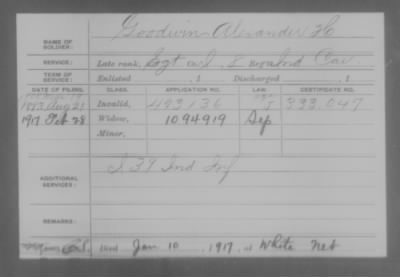 NAME OF SOLDIER: Goodwin Alexander H
SERVICE: Late rank, Sgt I Cav
TERM OF SERVICE: Enlisted , 1 Discharged , 1
DATE OF FILING. CLASS. APPLICATION NO. LAW. CERTIFICATE NO.
1883 Aug 21 Invalid, 493136 I 333.047
1917 Feb 28 Widow, 1094919 Sep
Minor,
ADDITIONAL SERVICES: I 39 Ind Inf
REMARKS:
died Jan 10 1917, at White Neb